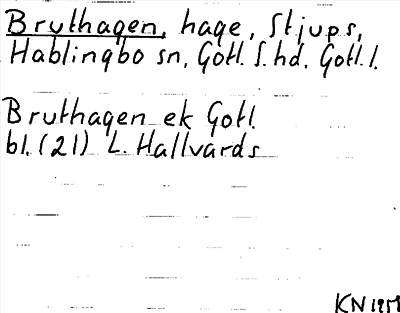 Bruthagen, hage, Stjups,
Hablingbo sn, Gotl. S. hd, Gotl. l.
Bruthagen ek Gotl.
bl. (21) L. Hallvards
KN